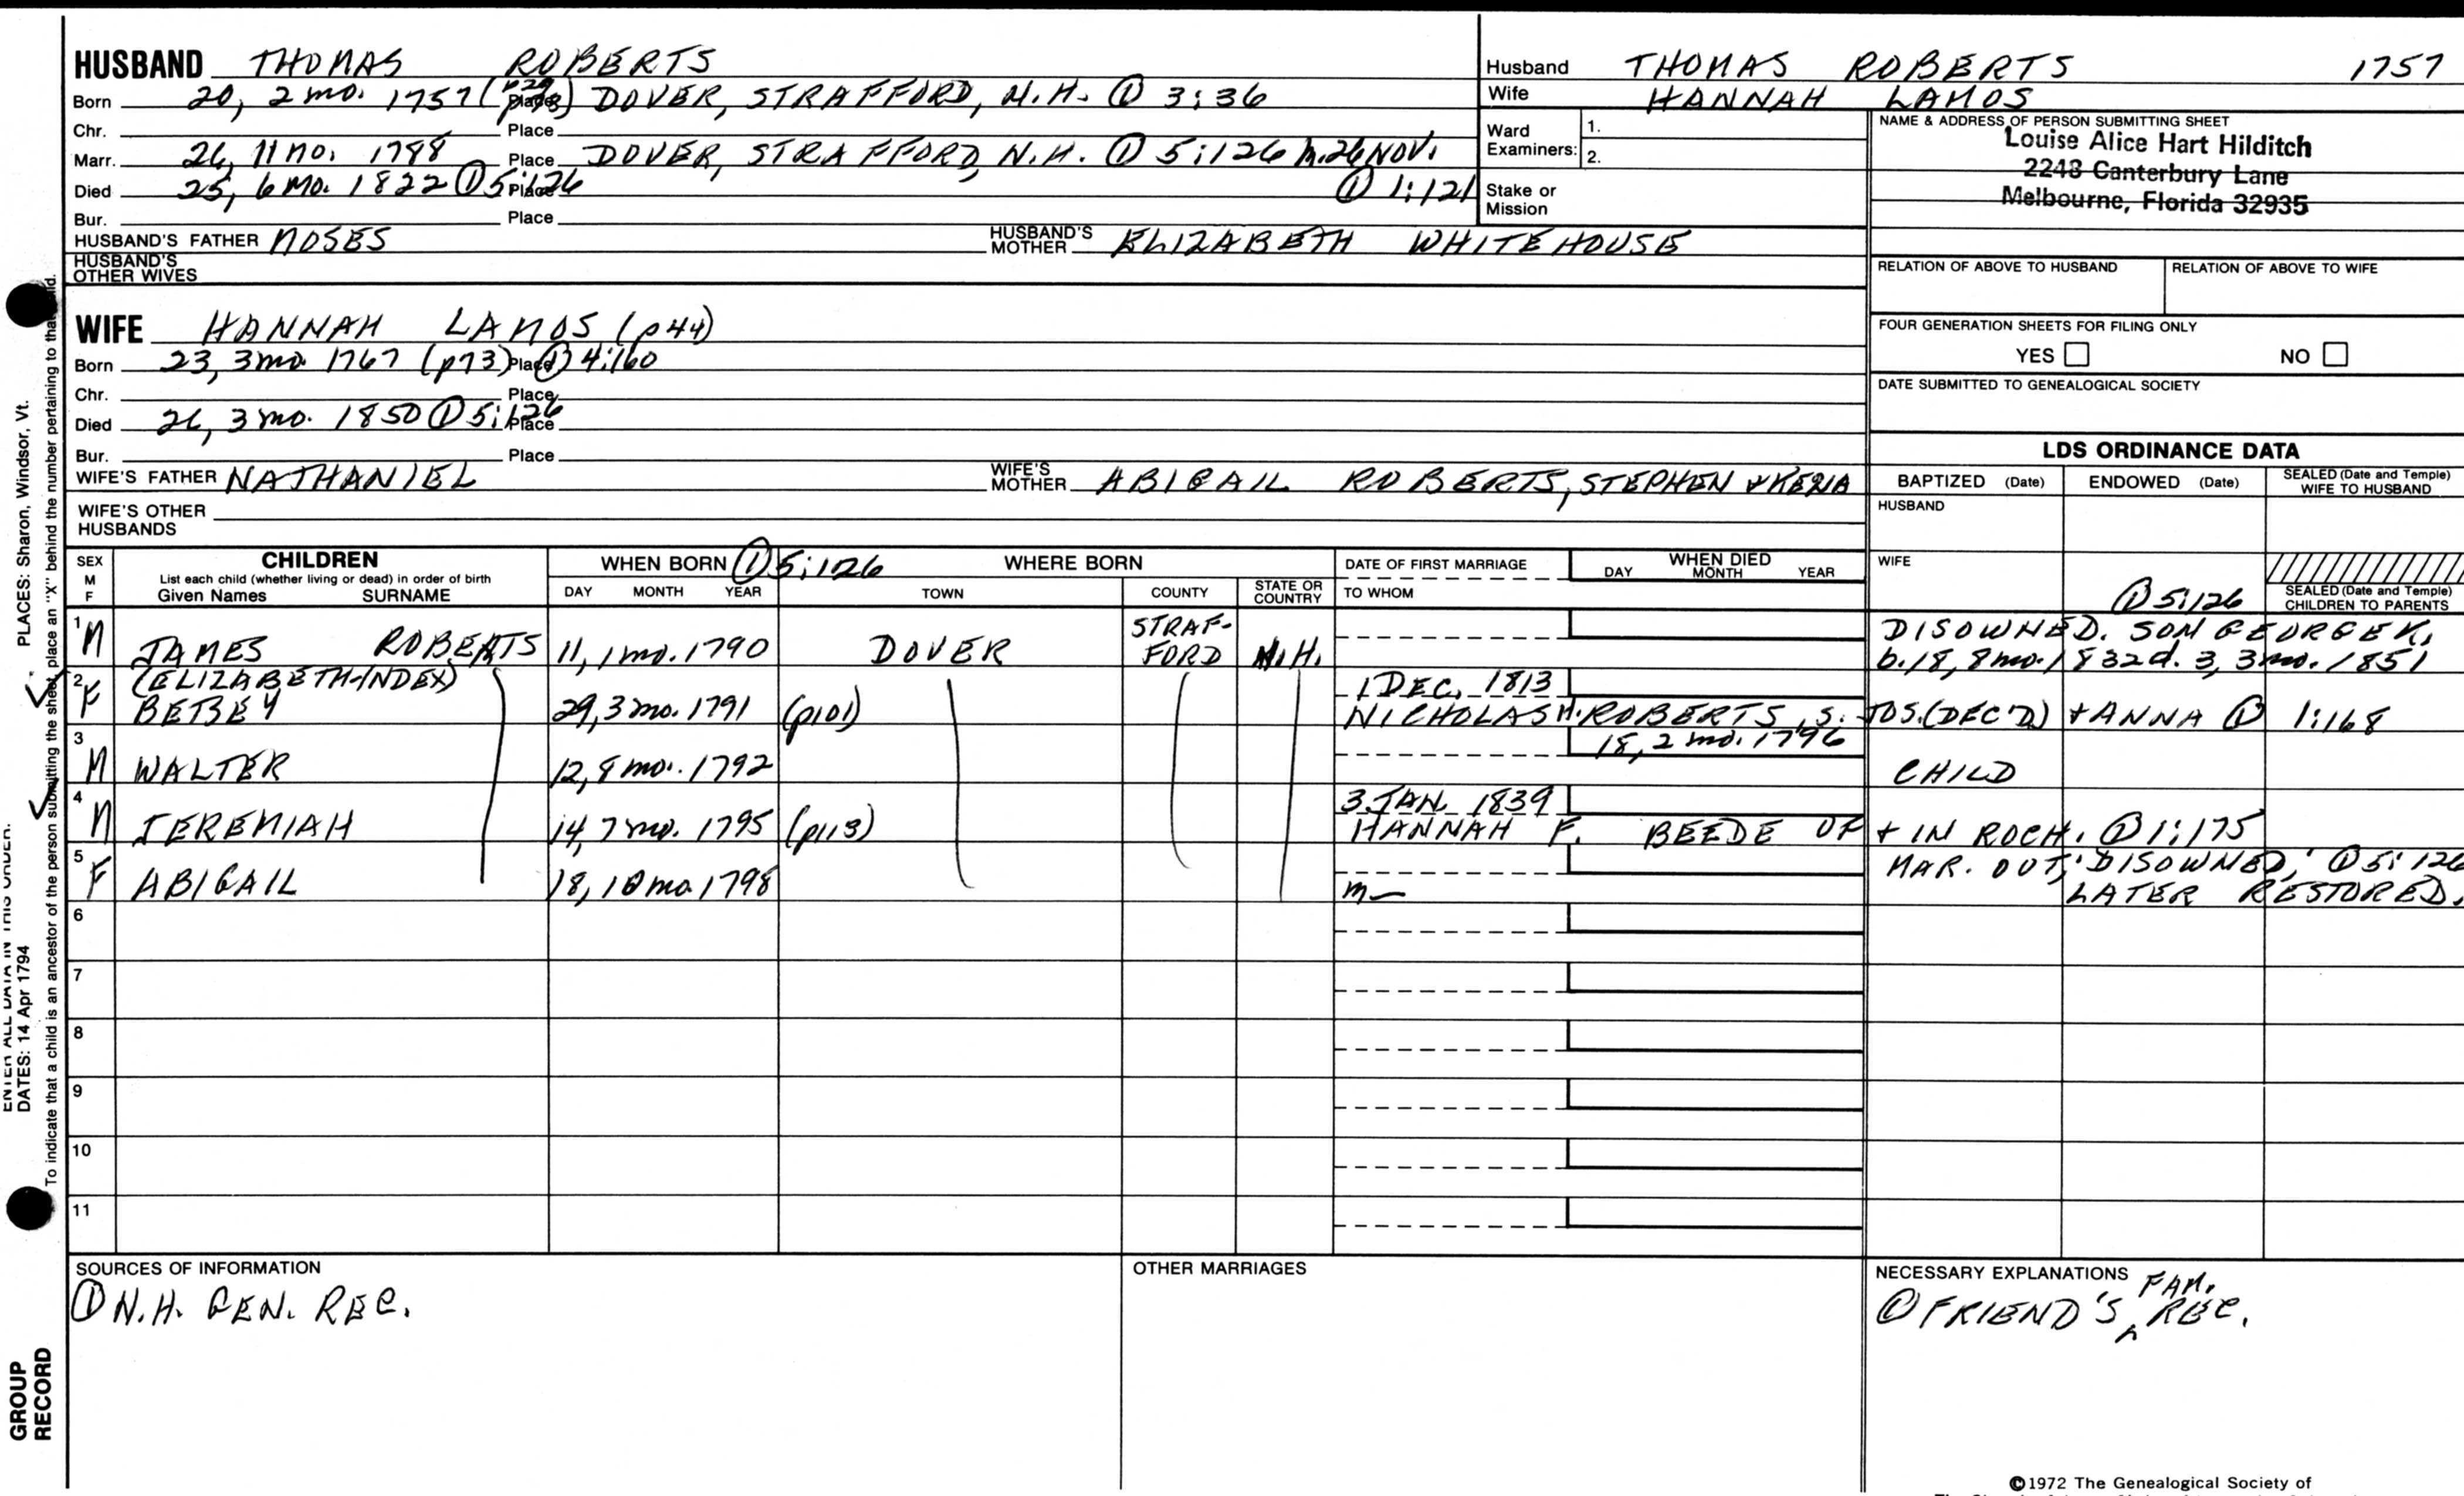 HUSBAND THOMAS ROBERTS
Born 20, 2 mo. 1757 (p29) Place DOVER, STRAFFORD, N.H. ① 3:36
Chr. Place
Marr. 26, 11 mo. 1788 Place DOVER, STRAFFORD, N.H. ① 5:126 m. 26 NOV. ① 1:121
Died 25, 6 mo. 1822 ① 5:126 Place
Bur. Place
HUSBAND'S FATHER MOSES HUSBAND'S MOTHER ELIZABETH WHITEHOUSE
HUSBAND'S OTHER WIVES
WIFE HANNAH LAMOS (p44)
Born 23, 3 mo. 1767 (p73) Place ① 4:160
Chr. Place
Died 26, 3 mo. 1850 ① 5:126 Place
Bur. Place
WIFE'S FATHER NATHANIEL WIFE'S MOTHER ABIGAIL ROBERTS, STEPHEN & KEZIA
WIFE'S OTHER HUSBANDS
Husband THOMAS ROBERTS 1757
Wife HANNAH LAMOS
Ward Examiners: 1.
2.
Stake or Mission
NAME & ADDRESS OF PERSON SUBMITTING SHEET
Louise Alice Hart Hilditch
2248 Canterbury Lane
Melbourne, Florida 32935
RELATION OF ABOVE TO HUSBAND RELATION OF ABOVE TO WIFE
FOUR GENERATION SHEETS FOR FILING ONLY
YES NO
DATE SUBMITTED TO GENEALOGICAL SOCIETY
LDS ORDINANCE DATA
BAPTIZED (Date) ENDOWED (Date) SEALED (Date and Temple) WIFE TO HUSBAND
HUSBAND
WIFE
① 5:126 SEALED (Date and Temple) CHILDREN TO PARENTS
SEX M F CHILDREN WHEN BORN ① 5:126 WHERE BORN DATE OF FIRST MARRIAGE WHEN DIED
List each child (whether living or dead) in order of birth DAY MONTH YEAR
Given Names SURNAME DAY MONTH YEAR TOWN COUNTY STATE OR COUNTRY TO WHOM
1 M JAMES ROBERTS 11, 1 mo. 1790 DOVER STRAF-FORD N.H. DISOWNED. SON GEORGE K.
b. 18, 8 mo. 1832 d. 3, 3 mo. 1851
2 F (ELIZABETH-INDEX) 1 DEC. 1813
BETSEY 29, 3 mo. 1791 (p101) NICHOLAS H. ROBERTS, S. JOS. (DEC'D) + ANNA ① 1:168
3 18, 2 mo. 1796
M WALTER 12, 8 mo. 1792 CHILD
4 3 JAN. 1839
M JEREMIAH 14, 7 mo. 1795 (p113) HANNAH F. BEEDE OF + IN ROCH. ① 1:175
5 MAR. OUT, 'DISOWNED,' ① 5:126
F ABIGAIL 18, 10 mo 1798 m— LATER RESTORED.
6
7
8
9
10
11
SOURCES OF INFORMATION
① N.H. GEN. REC.
OTHER MARRIAGES
NECESSARY EXPLANATIONS
① FRIEND'S FAM. REC.
©1972 The Genealogical Society of
PLACES: Sharon, Windsor, Vt.
DATES: 14 Apr 1794
To indicate that a child is an ancestor of the person submitting the sheet, place an "X" behind the number pertaining to that
GROUP
RECORD